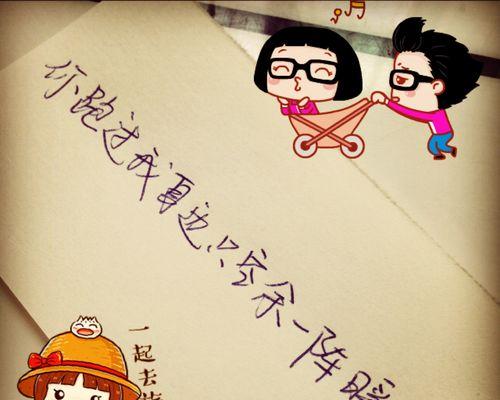 你跑过我身边,只空余一阵暖
一起去